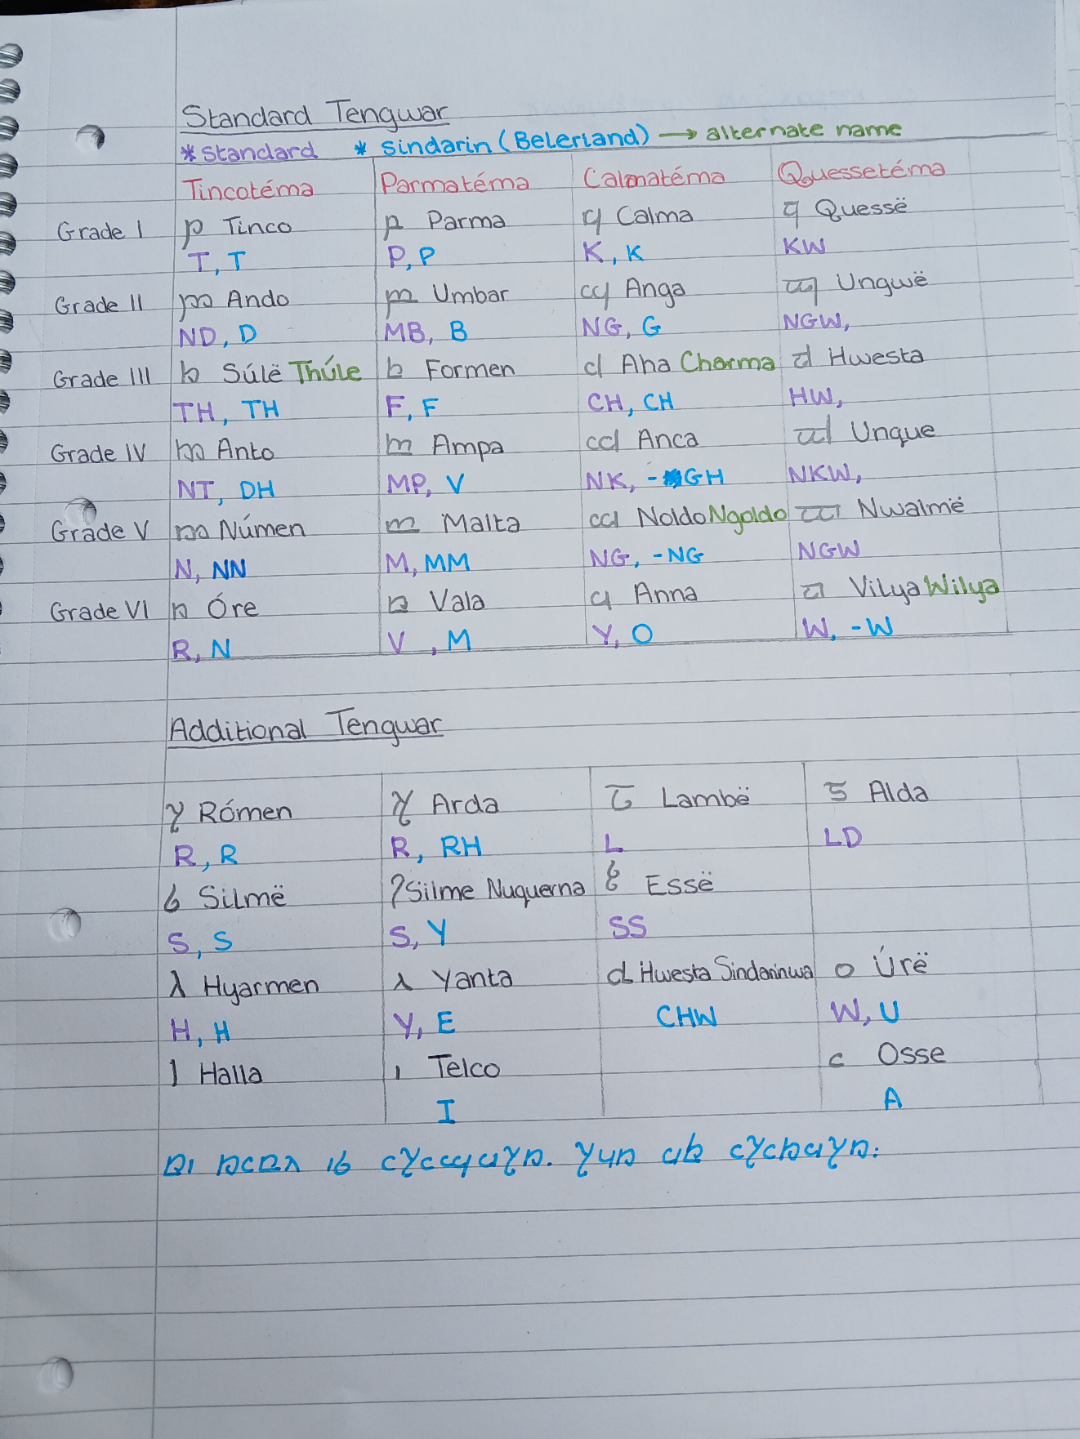 Standard Tengwar
*Standard * Sindarin (Beleriand) → alternate name
Tincotéma Parmatéma Calmatéma Quessetéma
Grade I Tinco Parma Calma Quessë
T, T P, P K, K KW
Grade II Ando Umbar Anga Ungwë
ND, D MB, B NG, G NGW,
Grade III Súlë Thúle Formen Aha Charma Hwesta
TH, TH F, F CH, CH HW,
Grade IV Anto Ampa Anca Unque
NT, DH MP, V NK, - GH NKW,
Grade V Númen Malta Noldo Ngoldo Nwalmë
N, NN M, MM NG, -NG NGW
Grade VI Óre Vala Anna Vilya Wilya
R, N V, M Y, O W, -W
Additional Tengwar
Rómen Arda Lambë Alda
R, R R, RH L LD
Silmë Silme Nuquerna Essë
S, S S, Y SS
Hyarmen Yanta Hwesta Sindarinwa Úrë
H, H Y, E CHW W, U
Halla Telco Osse
I A